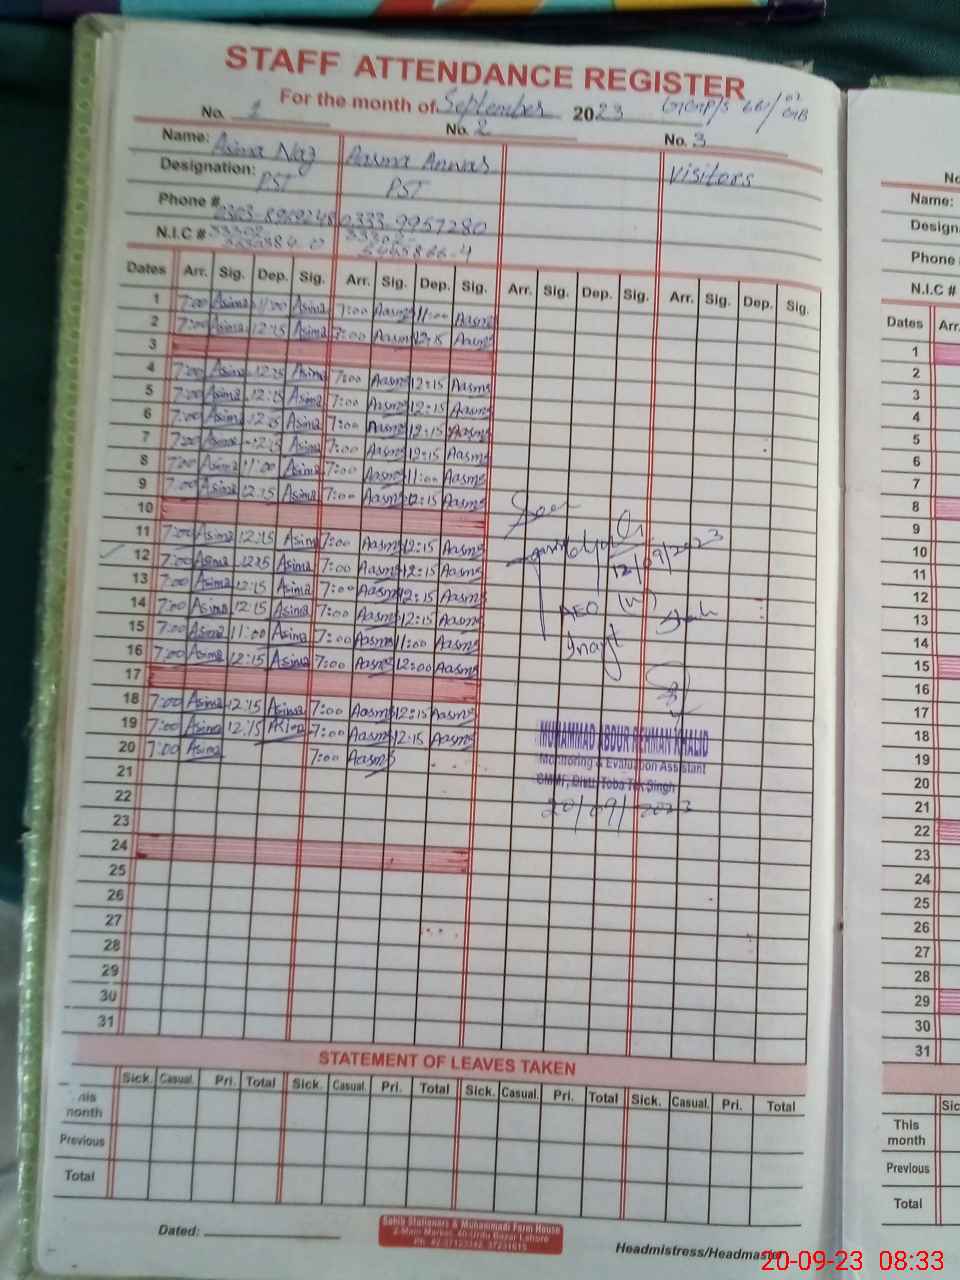 STAFF ATTENDANCE REGISTER
For the month of September 2023
No. 1 No. 2 No. 3
Name: Asima Naz Aasma Anwas Visitors
Designation: PST PST
Phone # 0333-9957280
N.I.C #
Dates Arr. Sig. Dep. Sig. Arr. Sig. Dep. Sig. Arr. Sig. Dep. Sig. Arr. Sig. Dep. Sig.
1 7:00 Asima 11:00 Asima 7:00 Aasma 11:00 Aasma
2 7:00 Asima 12:15 Asima 7:00 Aasma 12:15 Aasma
3
4 7:00 Asima 12:15 Asima 7:00 Aasma 12:15 Aasma
5 7:00 Asima 12:15 Asima 7:00 Aasma 12:15 Aasma
6 7:00 Asima 12:15 Asima 7:00 Aasma 12:15 Aasma
7 7:00 Asima 12:15 Asima 7:00 Aasma 12:15 Aasma
8 7:00 Asima 11:00 Asima 7:00 Aasma 11:00 Aasma
9 7:00 Asima 12:15 Asima 7:00 Aasma 12:15 Aasma
10
11 7:00 Asima 12:15 Asima 7:00 Aasma 12:15 Aasma
12 7:00 Asima 12:15 Asima 7:00 Aasma 12:15 Aasma
13 7:00 Asima 12:15 Asima 7:00 Aasma 12:15 Aasma
14 7:00 Asima 12:15 Asima 7:00 Aasma 12:15 Aasma
15 7:00 Asima 11:00 Asima 7:00 Aasma 11:00 Aasma
16 7:00 Asima 12:15 Asima 7:00 Aasma 12:00 Aasma
17
18 7:00 Asima 12:15 Asima 7:00 Aasma 12:15 Aasma
19 7:00 Asima 12:15 Asima 7:00 Aasma 12:15 Aasma
20 7:00 Asima 7:00 Aasma
21
22
23
24
25
26
27
28
29
30
31
Seen
12/09/2023
AEO (W)
MUHAMMAD ABDUR REHMAN KHALID
Monitoring & Evaluation Assistant
CMMF, Distt. Toba Tek Singh
20/09/2023
STATEMENT OF LEAVES TAKEN
Sick. Casual. Pri. Total Sick. Casual. Pri. Total Sick. Casual. Pri. Total Sick. Casual. Pri. Total
This month
Previous
Total
Dated:
Sahib Stationers & Muhammadi Form House
2-Main Market, 40-Urdu Bazar Lahore
Headmistress/Headmaste
No
Name:
Design
Phone
N.I.C #
Dates Arr.
1
2
3
4
5
6
7
8
9
10
11
12
13
14
15
16
17
18
19
20
21
22
23
24
25
26
27
28
29
30
31
Sic
This
month
Previous
Total
20-09-23 08:33